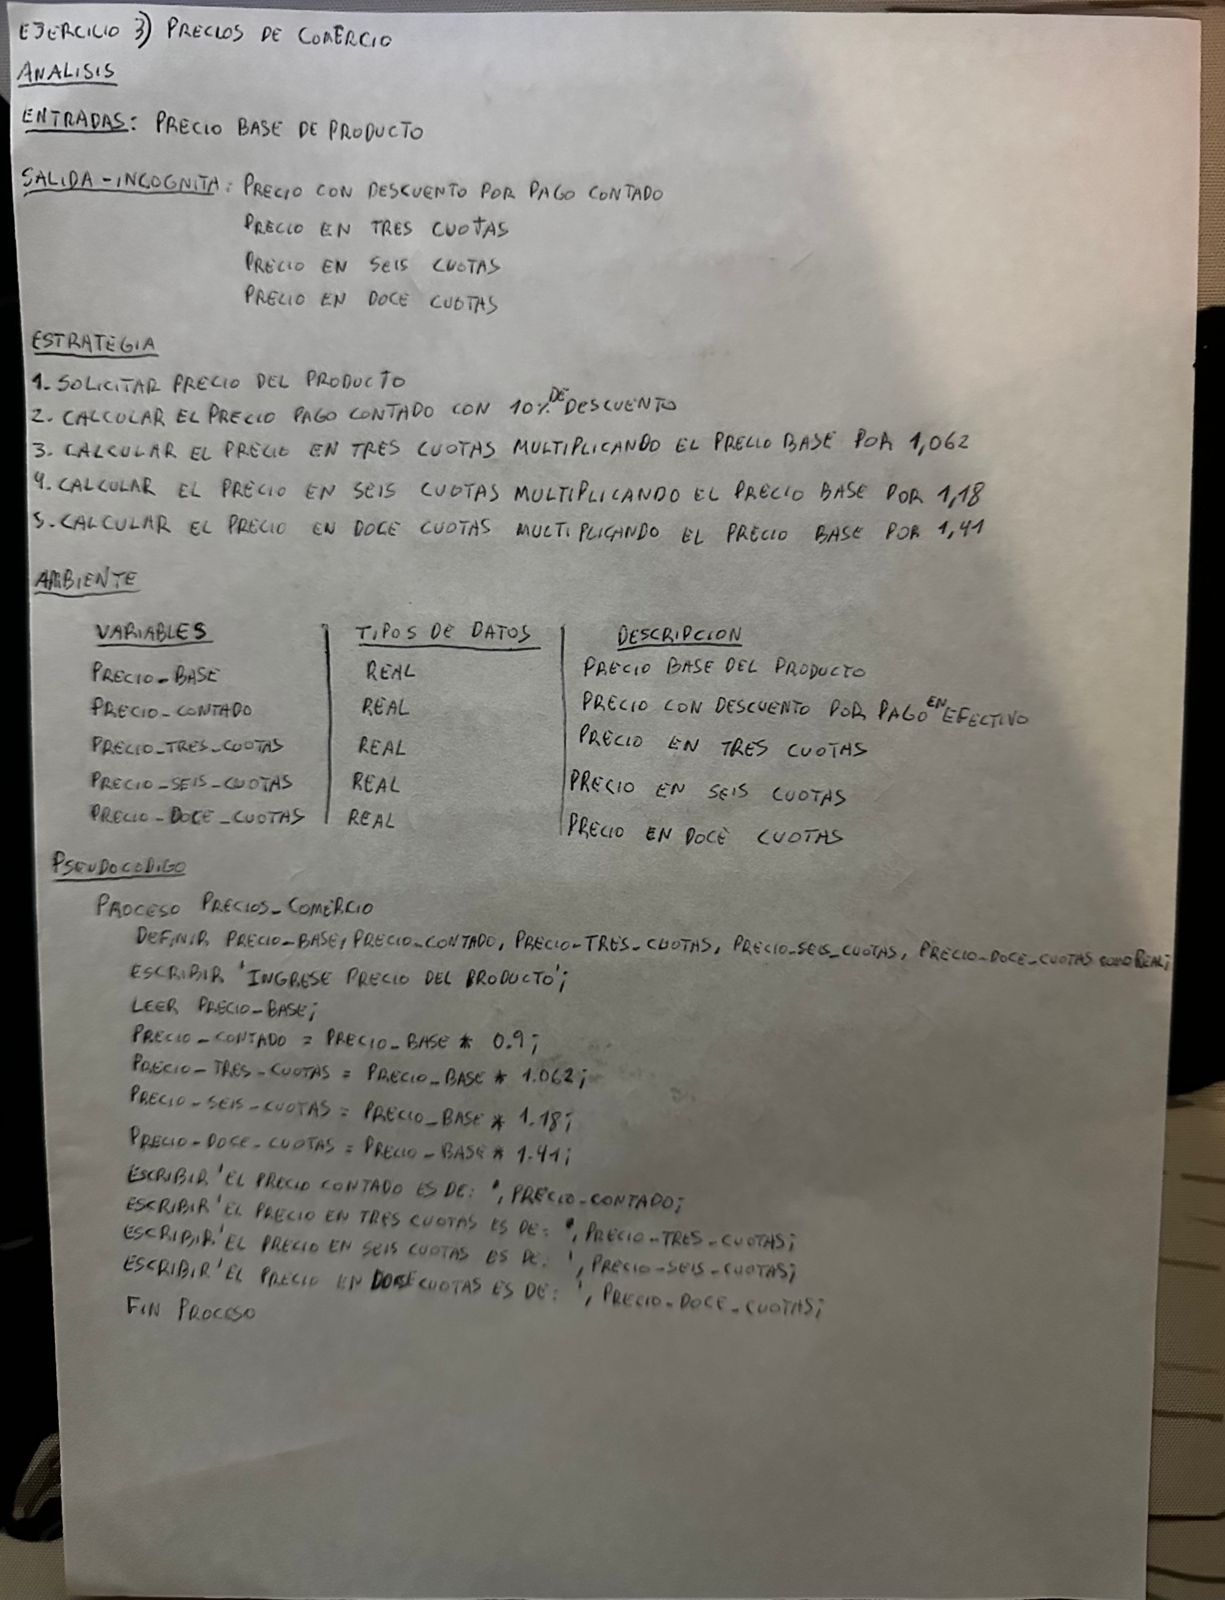 EJERCICIO 3) PRECIOS DE COMERCIO
ANALISIS
ENTRADAS: PRECIO BASE DE PRODUCTO
SALIDA-INCOGNITA: PRECIO CON DESCUENTO POR PAGO CONTADO
PRECIO EN TRES CUOTAS
PRECIO EN SEIS CUOTAS
PRECIO EN DOCE CUOTAS
ESTRATEGIA
1. SOLICITAR PRECIO DEL PRODUCTO
2. CALCULAR EL PRECIO PAGO CONTADO CON 10% DE DESCUENTO
3. CALCULAR EL PRECIO EN TRES CUOTAS MULTIPLICANDO EL PRECIO BASE POR 1,062
4. CALCULAR EL PRECIO EN SEIS CUOTAS MULTIPLICANDO EL PRECIO BASE POR 1,18
5. CALCULAR EL PRECIO EN DOCE CUOTAS MULTIPLICANDO EL PRECIO BASE POR 1,41
AMBIENTE
VARIABLES | TIPOS DE DATOS | DESCRIPCION
PRECIO_BASE | REAL | PRECIO BASE DEL PRODUCTO
PRECIO_CONTADO | REAL | PRECIO CON DESCUENTO POR PAGO EN EFECTIVO
PRECIO_TRES_CUOTAS | REAL | PRECIO EN TRES CUOTAS
PRECIO_SEIS_CUOTAS | REAL | PRECIO EN SEIS CUOTAS
PRECIO_DOCE_CUOTAS | REAL | PRECIO EN DOCE CUOTAS
PSEUDOCODIGO
PROCESO PRECIOS_COMERCIO
DEFINIR PRECIO_BASE, PRECIO_CONTADO, PRECIO_TRES_CUOTAS, PRECIO_SEIS_CUOTAS, PRECIO_DOCE_CUOTAS COMO REAL;
ESCRIBIR 'INGRESE PRECIO DEL PRODUCTO';
LEER PRECIO_BASE;
PRECIO_CONTADO = PRECIO_BASE * 0.9;
PRECIO_TRES_CUOTAS = PRECIO_BASE * 1.062;
PRECIO_SEIS_CUOTAS = PRECIO_BASE * 1.18;
PRECIO_DOCE_CUOTAS = PRECIO_BASE * 1.41;
ESCRIBIR 'EL PRECIO CONTADO ES DE: ', PRECIO_CONTADO;
ESCRIBIR 'EL PRECIO EN TRES CUOTAS ES DE: ', PRECIO_TRES_CUOTAS;
ESCRIBIR 'EL PRECIO EN SEIS CUOTAS ES DE: ', PRECIO_SEIS_CUOTAS;
ESCRIBIR 'EL PRECIO EN DOCE CUOTAS ES DE: ', PRECIO_DOCE_CUOTAS;
FIN PROCESO